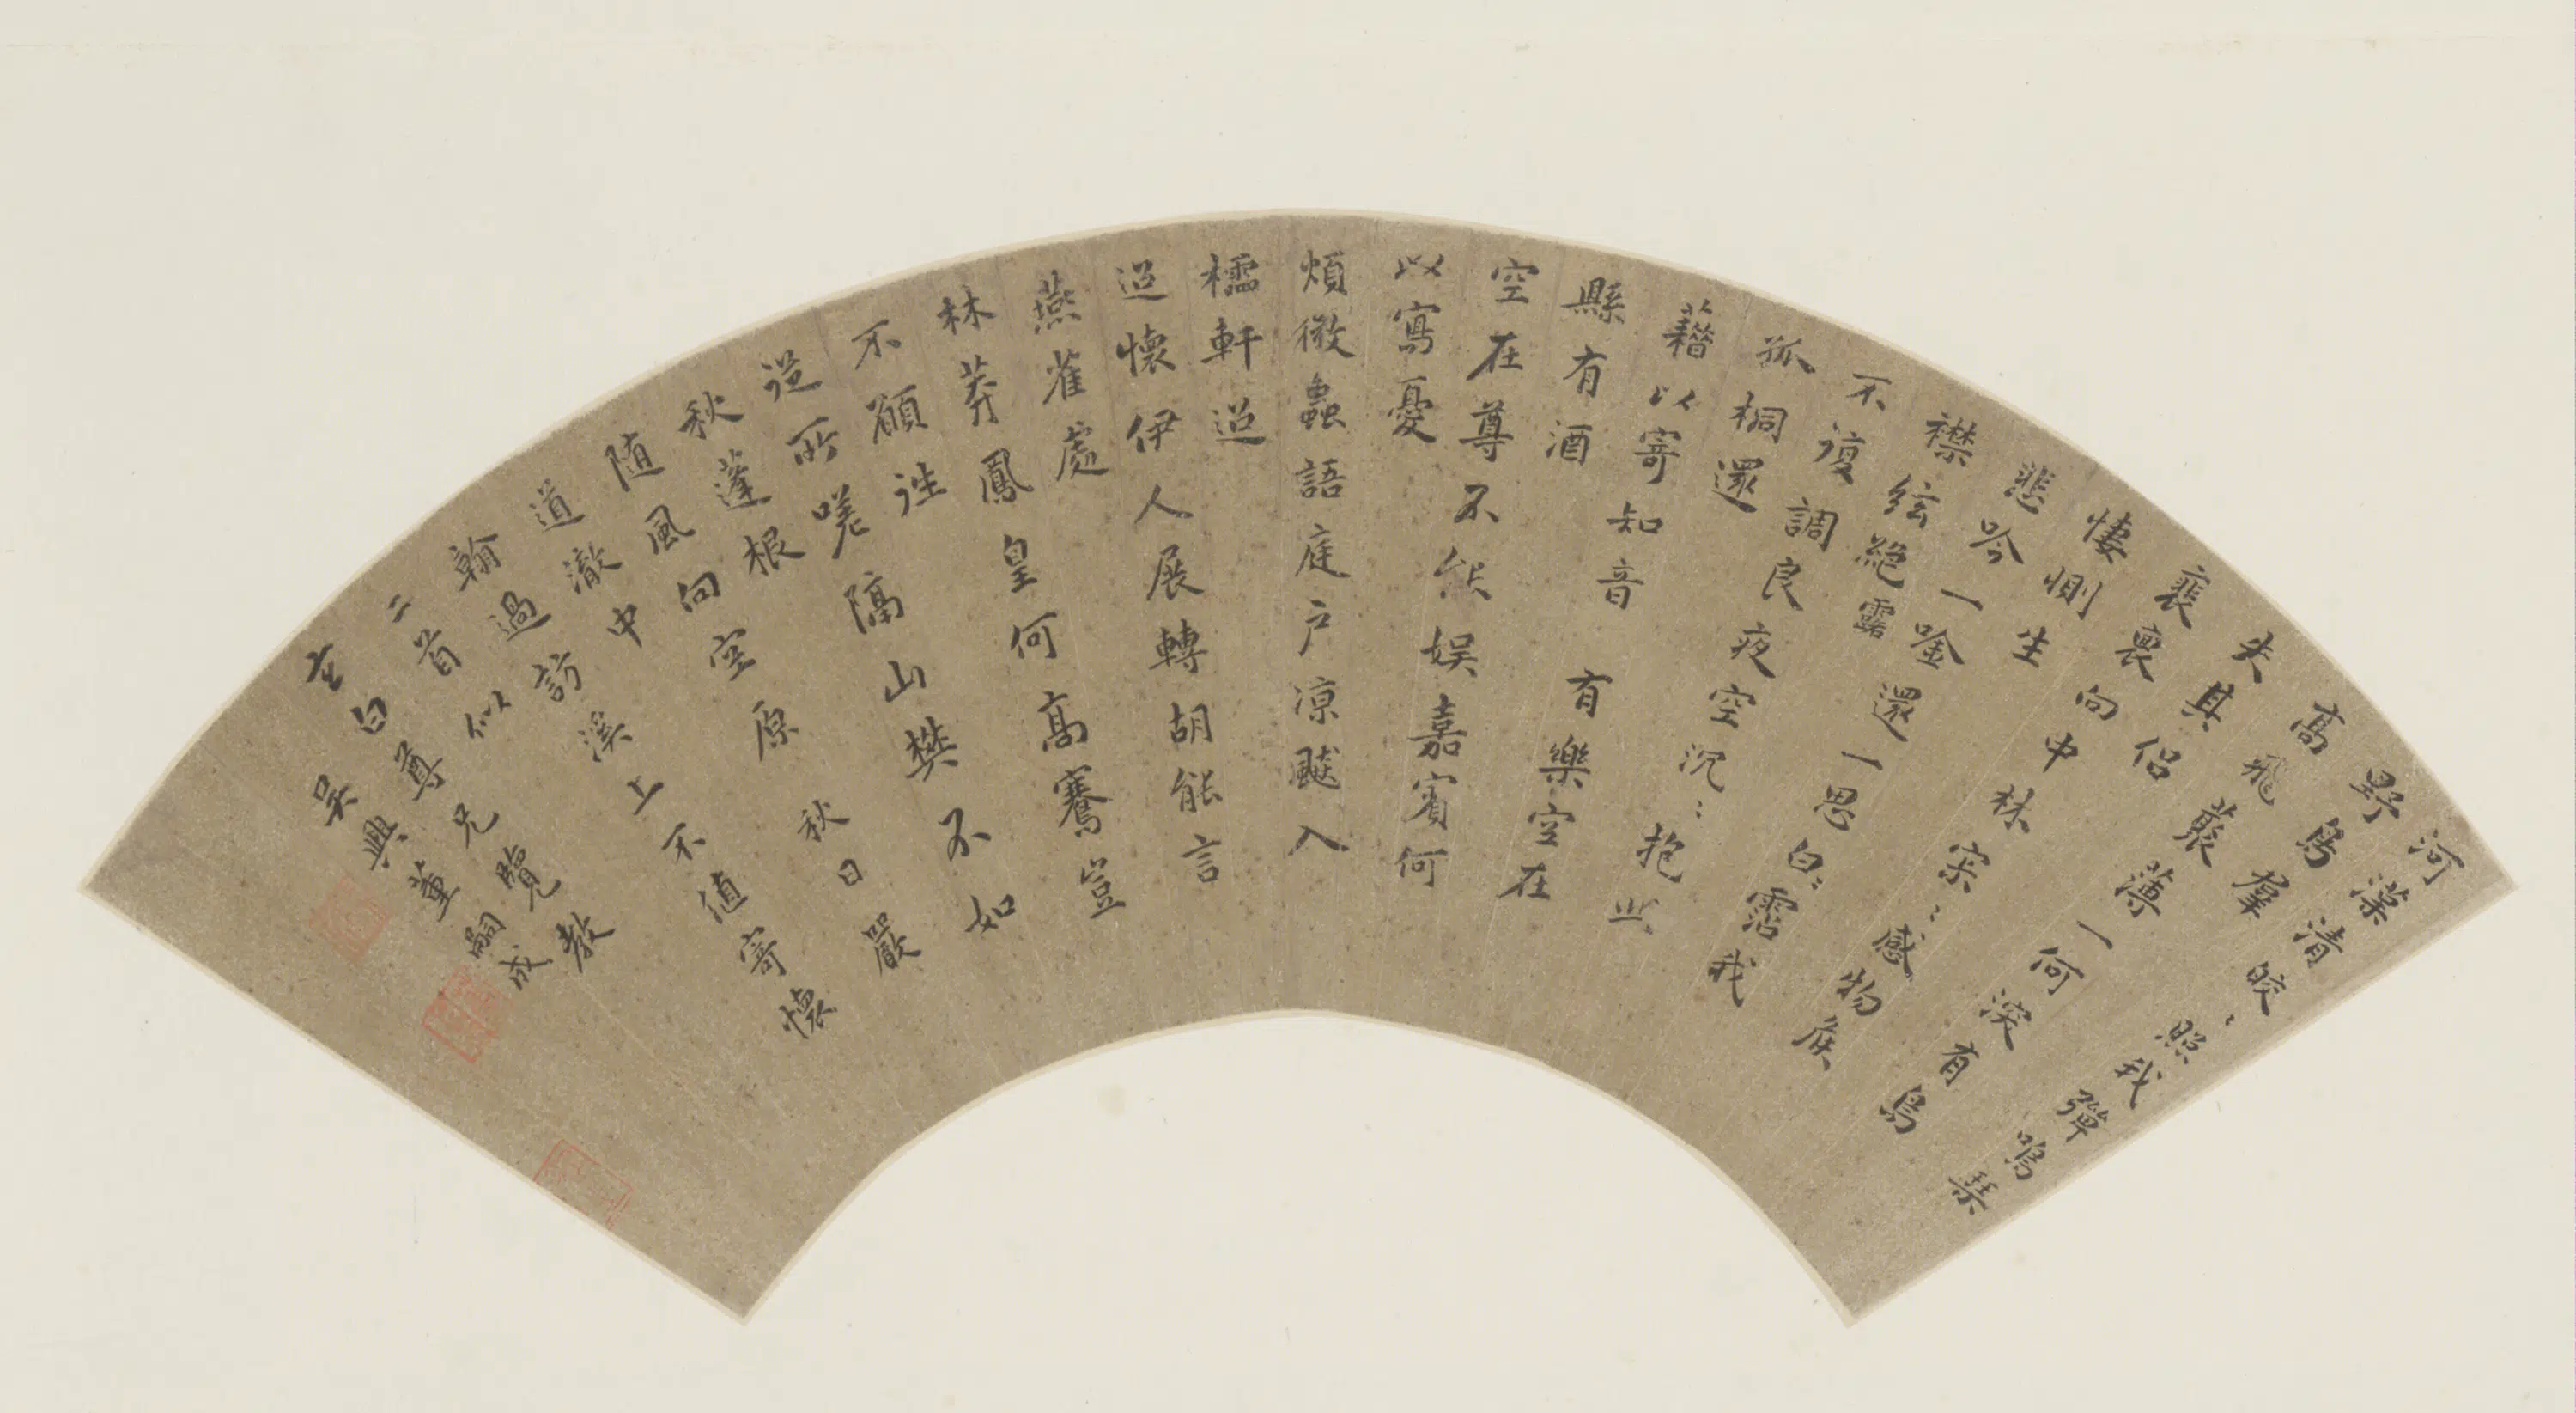 河漢清皎〻照我彈鳴琴
野鳥羣
高飛叢薄一何深有鳥
失其侶
裴裏向中林寀〻感物候
悽惻生
悲吟一唫還一思白〻露我
襟絃絕露
不復調良夜空沉〻抱此
孤桐還
藉以寄知音 有樂空在
縣有酒
空在尊不能娛嘉賓何
以寫憂
煩徵蟲語庭户凉飇入
櫺軒迢
迢懷伊人展轉胡能言
燕雀處
林莽鳳皇何高騫豈
不願往
從所嗟隔山樊不如
秋蓬根
随風向空原 秋日嚴
道澈中
翰過訪溪上不值寄懷
二首似
玄白尊兄覽教
吳興董嗣成